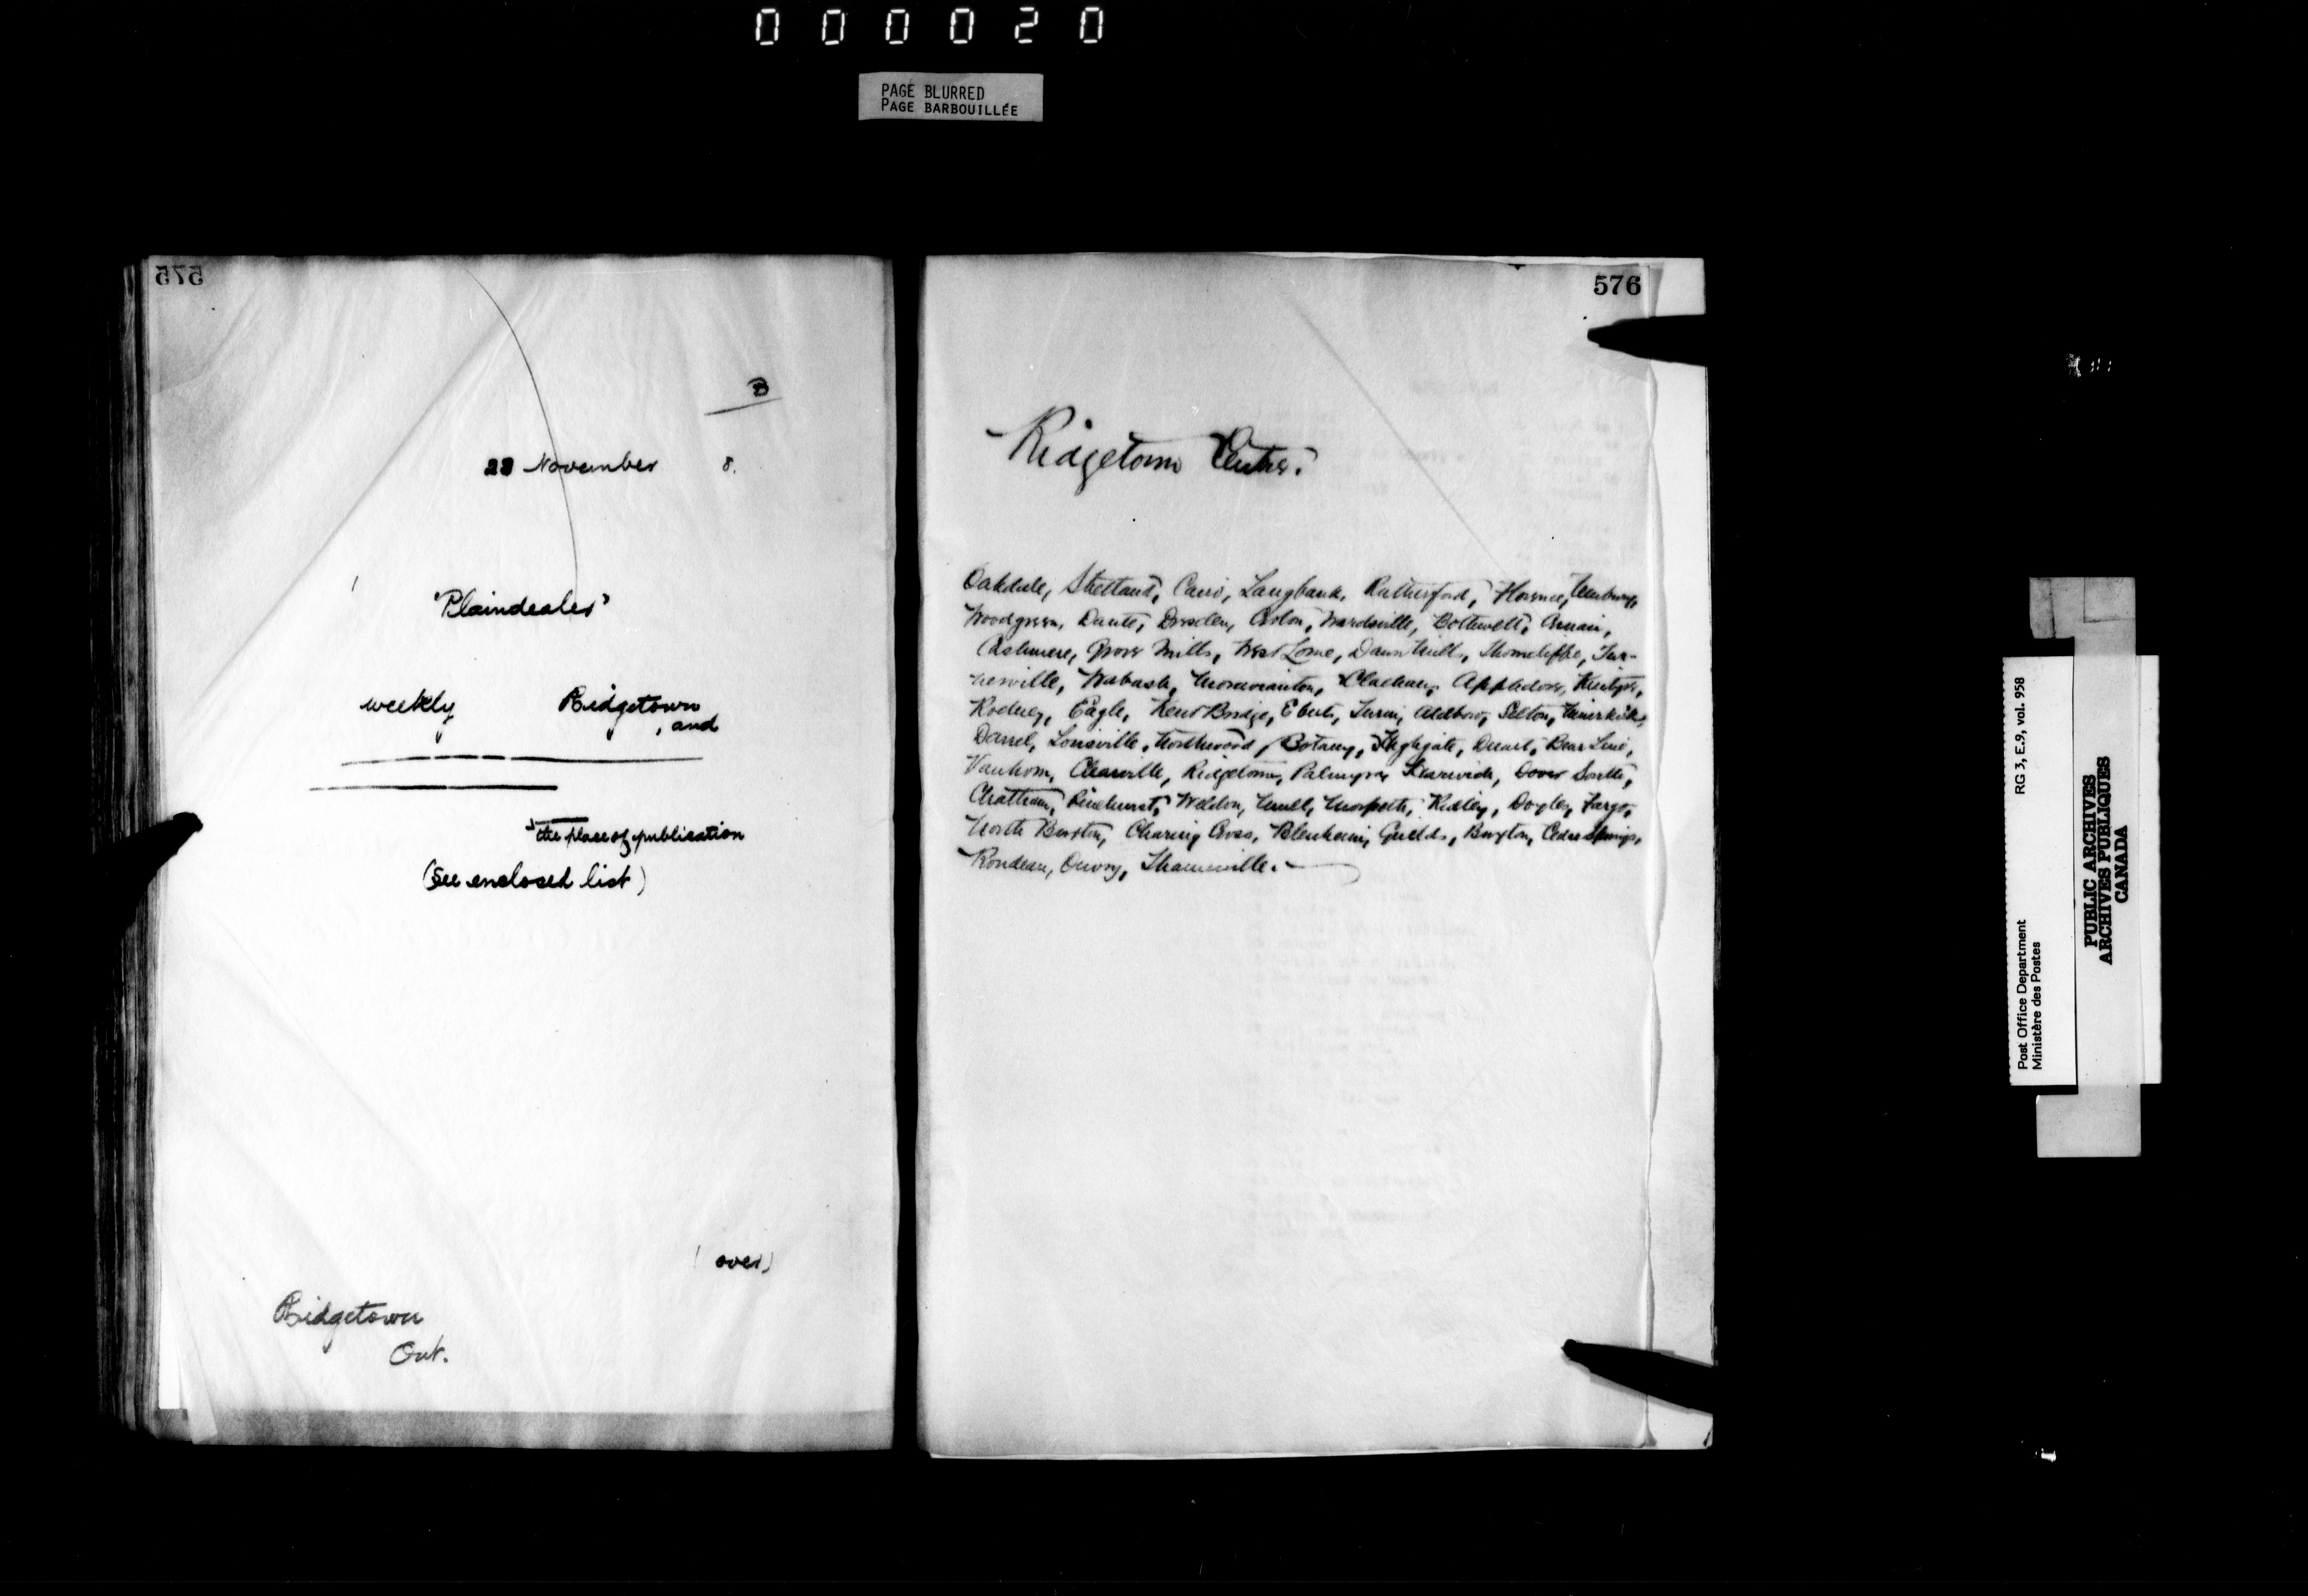 000020
PAGE BLURRED
PAGE BARBOUILLÉE
575
B
November 8.
"Plaindealer"
weekly Ridgetown
, and
the place of publication
(See enclosed list)
(over)
Ridgetown
Ont.
576
Ridgetown Centre.
Oakdale, Shetland, Cairo, Langbank, Rutherford, Florence, Newbury,
Woodgreen, Dante, Dresden, Croton, Wardsville, Bothwell,
Cashmere, Grove Mills, West Lorne, Dawn Mills, Thorncliffe, Tur-
nerville, Wabash, Clachan, Appledore, Kintyre,
Rodney, Eagle, Kent Bridge, Eberts, Turin, Aldboro, Selton, Muirkirk,
Darrel, Louisville, Northwood, Botany, Highgate, Duart, Bear Line,
Vanhorn, Clearville, Ridgetown, Palmyra, Dover South,
Chatham, Pinehurst, Weldon, Mull, Morpeth, Ridley, Doyles, Fargo,
North Buxton, Charing Cross, Blenheim, Guilds, Buxton, Cedar Springs,
Rondeau, Ouvry, Thamesville.
Post Office Department
Ministère des Postes
RG 3, E.9, vol. 958
PUBLIC ARCHIVES
ARCHIVES PUBLIQUES
CANADA